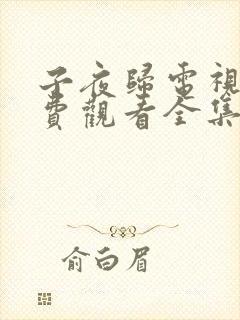 子夜歸電視
費觀看全集
俞白眉